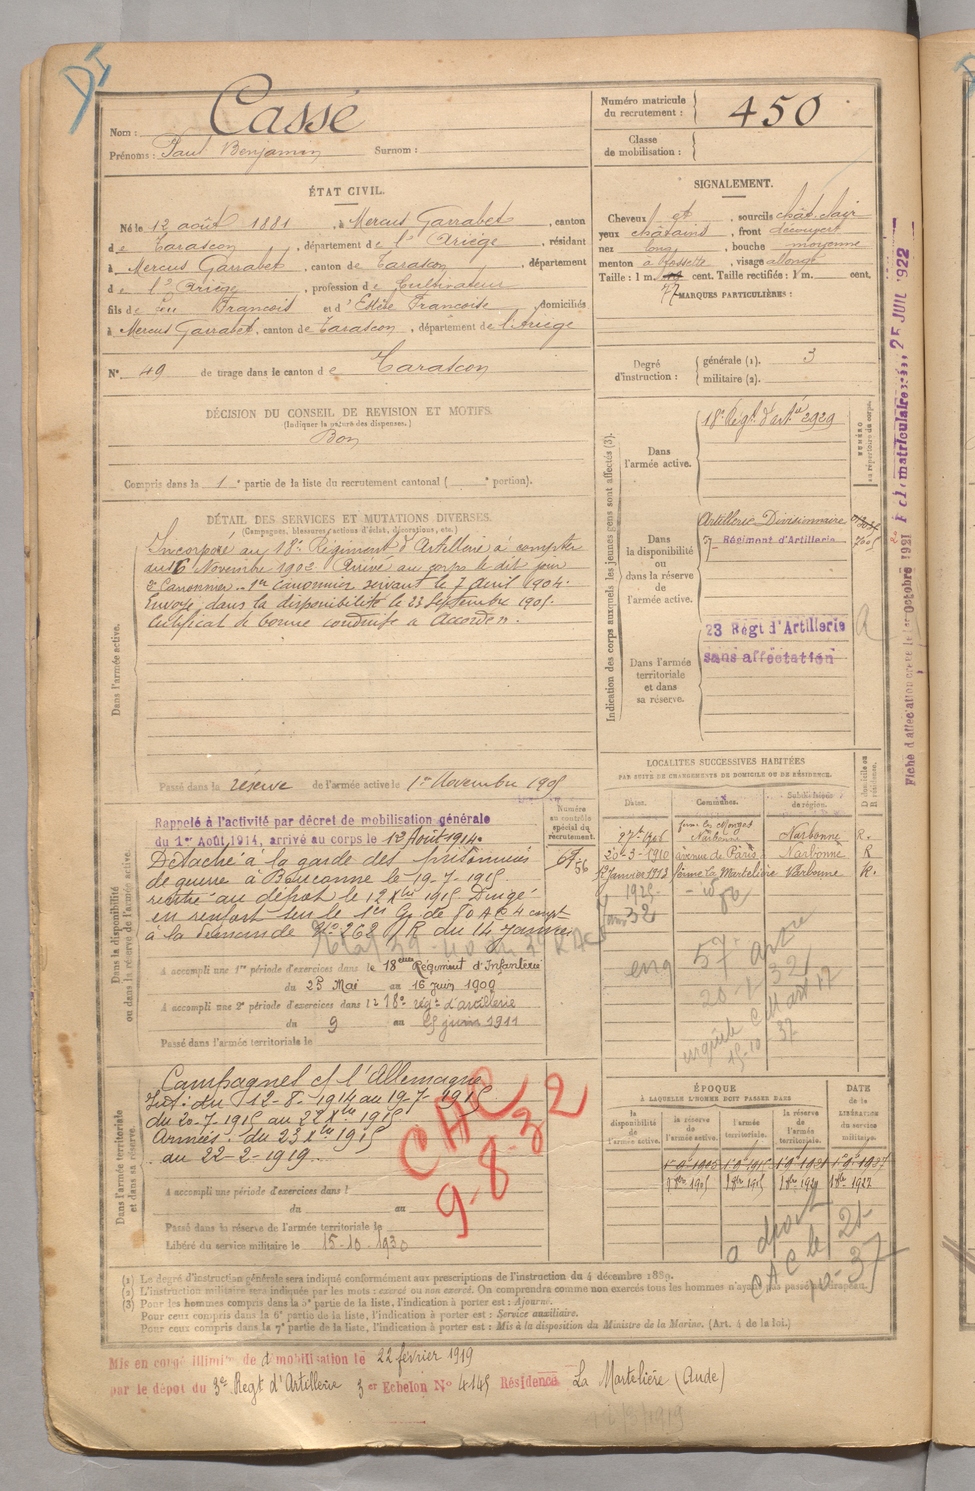 Nom : Cassé
Prénoms : Paul Benjamin Surnom :
Numéro matricule du recrutement : 450
Classe de mobilisation :
ÉTAT CIVIL.
Né le 12 août 1881, à Mercus Garrabet, canton
de Tarascon, département de l'Ariège, résidant
à Mercus Garrabet, canton de Tarascon, département
de l'Ariège, profession de Cultivateur
fils de feu François et d'Estève Françoise, domiciliés
à Mercus Garrabet, canton de Tarascon, département de l'Ariège
N° 49 de tirage dans le canton de Tarascon
SIGNALEMENT.
Cheveux et, sourcils chât. clair
yeux châtains, front découvert
nez long, bouche moyenne
menton à fossette, visage allongé
Taille : 1 m. cent. Taille rectifiée : 1 m. cent.
77 MARQUES PARTICULIÈRES :
Degré d'instruction : générale (1). 3
militaire (2).
DÉCISION DU CONSEIL DE REVISION ET MOTIFS.
(Indiquer la nature des dispenses.)
Bon
Compris dans la 1e partie de la liste du recrutement cantonal ( portion).
DÉTAIL DES SERVICES ET MUTATIONS DIVERSES.
(Campagnes, blessures, actions d'éclat, décorations, etc.)
Dans l'armée active.
Incorporé au 18e Régiment d'Artillerie à compter
du 16 Novembre 1902 Arrivé au corps le dit jour
2e Canonnier. 1er Canonnier servant le 7 Avril 1904.
Envoyé dans la disponibilité le 23 Septembre 1905.
Certificat de bonne conduite "Accordé".
Passé dans la réserve de l'armée active le 1er Novembre 1905
Indication des corps auxquels les jeunes gens sont affectés (3).
Dans l'armée active.
18e Régt d'artie 2929
NUMÉRO au répertoire du corps.
Dans la disponibilité ou dans la réserve de l'armée active.
Artillerie Divisionnaire
Régiment d'Artillerie
Dans l'armée territoriale et dans sa réserve.
23 Régt d'Artillerie
sans affectation
Fiche d'affectation 1er octobre 1921 matriculaire 25 JUIL 1922
Dans la disponibilité ou dans la réserve de l'armée active.
Rappelé à l'activité par décret de mobilisation générale
du 1er Août 1914, arrivé au corps le 12 Août 1914.
Détaché à la garde des prisonniers
de guerre à Bouconne le 19-7-1915
rentré au dépôt le 12 Xbre 1915 Dirigé
en renfort sur le 1er Gr de 80 A C 4 compt
à la demande N° 262 /R du 14 janvier
Numéro au contrôle spécial du recrutement.
A accompli une 1re période d'exercices dans le 18ème Régiment d'Infanterie
du 25 Mai au 16 Juin 1909
A accompli une 2e période d'exercices dans le 18e régt d'artillerie
du 9 au 25 juin 1911
Passé dans l'armée territoriale le
LOCALITÉS SUCCESSIVES HABITÉES
PAR SUITE DE CHANGEMENTS DE DOMICILE OU DE RÉSIDENCE.
Dates. Communes. Subdivisions de région. D domicile ou R résidence.
Narbonne Narbonne R.
20-3-1910 avenue de Paris Narbonne R
Janvier 1912 ferme La Martelière Narbonne R.
1925
32
57 artre
20-1-32
15-10-37
Dans l'armée territoriale et dans sa réserve.
Campagnes ct l'Allemagne
Int : du 12-8-1914 au 19-7-1915
du 20-7-1915 au 22 Xbre 1915
Armées : du 23 Xbre 1915
au 22-2-1919.
CAC
9-8-32
A accompli une période d'exercices dans l
du au
Passé dans la réserve de l'armée territoriale le
Libéré du service militaire le 15-10-1930
ÉPOQUE
À LAQUELLE L'HOMME DOIT PASSER DANS
la disponibilité de l'armée active. la réserve de l'armée active. l'armée territoriale. la réserve de l'armée territoriale. DATE de la LIBÉRATION du service militaire.
(1) Le degré d'instruction générale sera indiqué conformément aux prescriptions de l'instruction du 4 décembre 1889.
(2) L'instruction militaire sera indiquée par les mots : exercé ou non exercé. On comprendra comme non exercés tous les hommes n'ayant pas passé au drapeau.
(3) Pour les hommes compris dans la 5e partie de la liste, l'indication à porter est : Ajourné.
Pour ceux compris dans la 6e partie de la liste, l'indication à porter est : Service auxiliaire.
Pour ceux compris dans la 7e partie de la liste, l'indication à porter est : Mis à la disposition du Ministre de la Marine. (Art. 4 de la loi.)
Mis en congé illimité de démobilisation le 22 février 1919
par le dépôt du 3e Régt d'Artillerie 3er Echelon N° 4145 Résidence La Martelière (Aude)